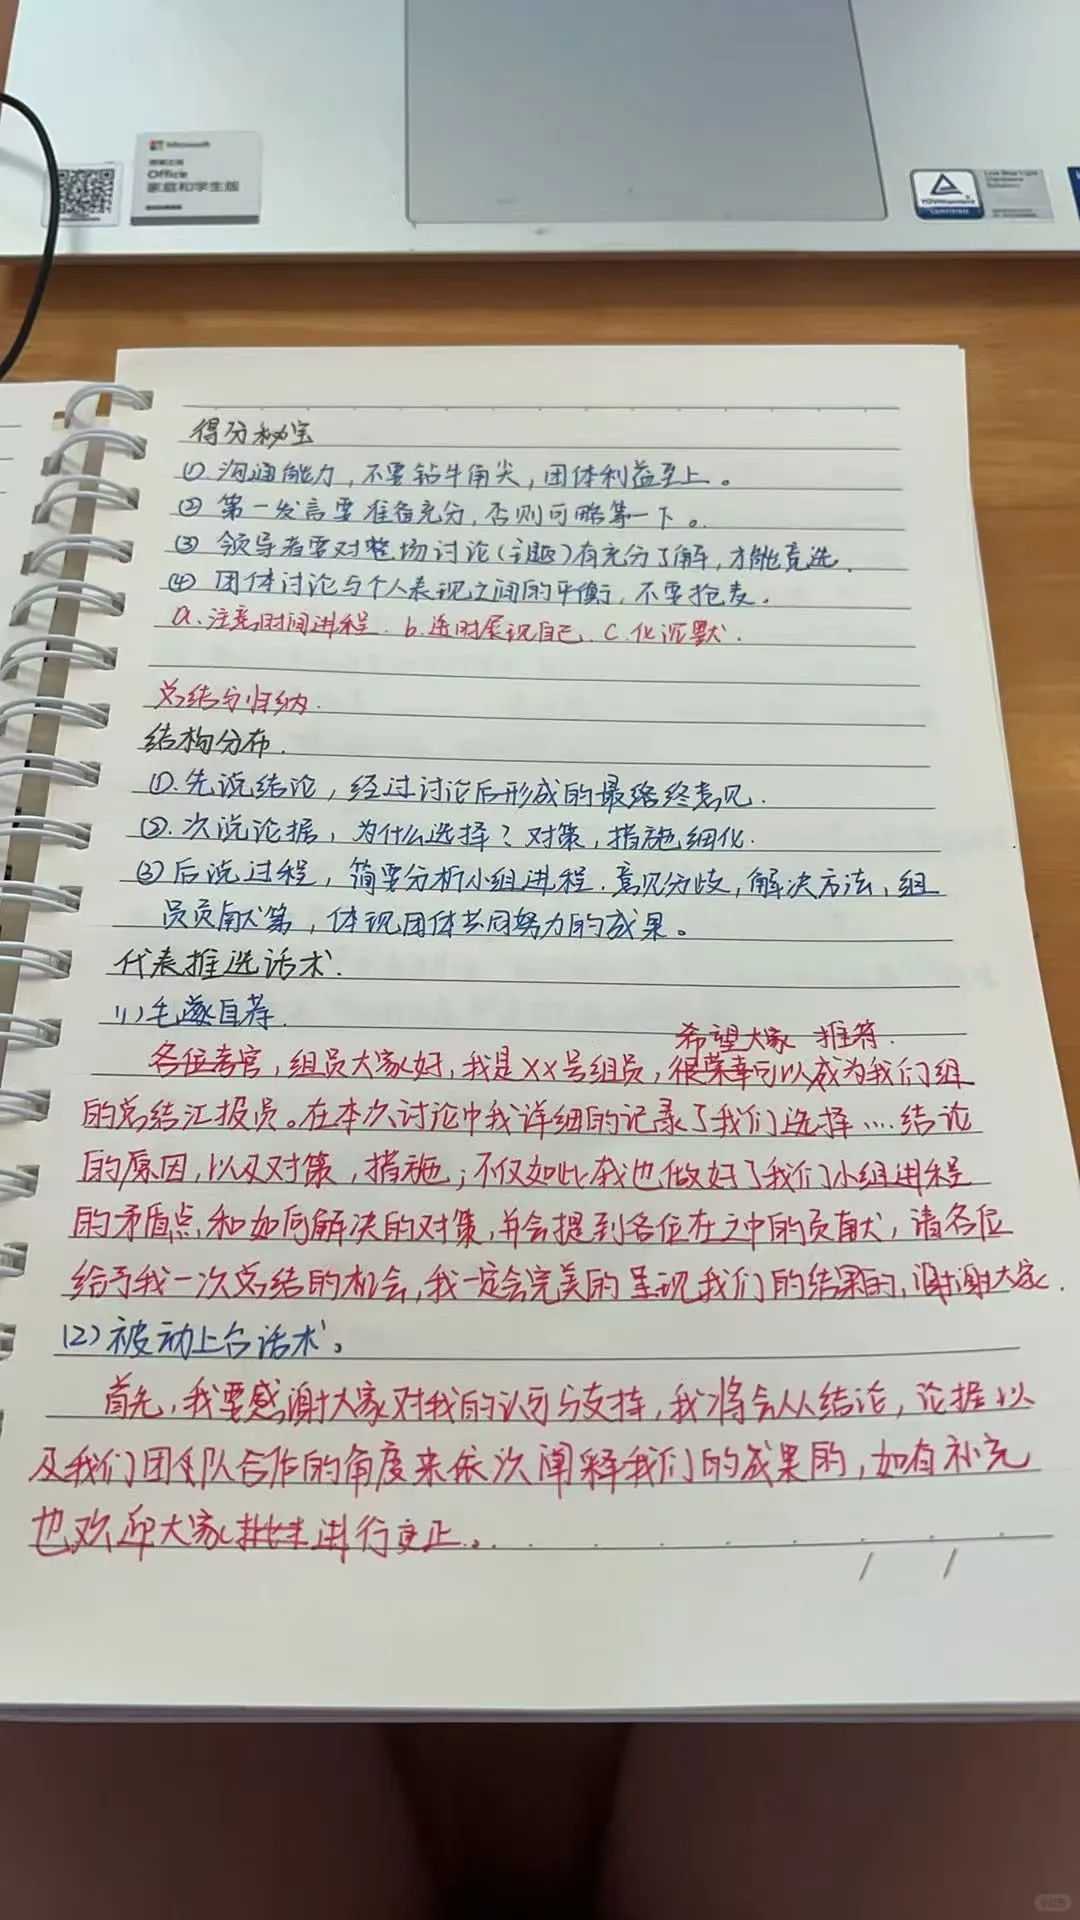 Microsoft
Office
家庭和学生版
TÜVRheinland
CERTIFIED
得分秘宝
①. 沟通能力，不要钻牛角尖，团体利益至上。
② 第一发言要准备充分，否则可略等一下。
③ 领导者要对整场讨论(主题)有充分了解，才能竞选.
④ 团体讨论与个人表现之间的平衡，不要抢麦.
a.注意时间进程. b.适时展现自己. c.化沉默.
总结与归纳.
结构分布.
①.先说结论，经过讨论后形成的最终意见.
②.次说论据，为什么选择？对策，措施细化.
③后说过程，简要分析小组进程.意见分歧，解决方法，组
员贡献等，体现团体共同努力的成果。
代表推选话术.
(1)毛遂自荐.
希望大家 推荐.
各位考官，组员大家好，我是XX号组员，很荣幸可以成为我们组
的总结汇报员。在本次讨论中我详细的记录了我们选择....结论
的原因，以及对策，措施；不仅如此我也做好了我们小组进程
的矛盾点和如何解决的对策，并会提到各位在之中的贡献，请各位
给予我一次总结的机会，我一定会完美的呈现我们的结果的，谢谢大家.
(2)被动上台话术。
首先，我要感谢大家对我的认可与支持，我将会从结论，论据以
及我们团队合作的角度来依次阐释我们的成果的，如有补充
也欢迎大家进行更正.
小红书